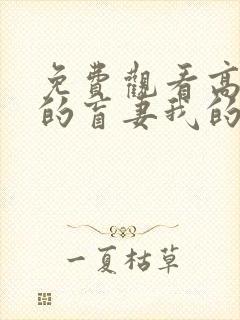 免費觀看高
的盲妻我的
一夏枯草